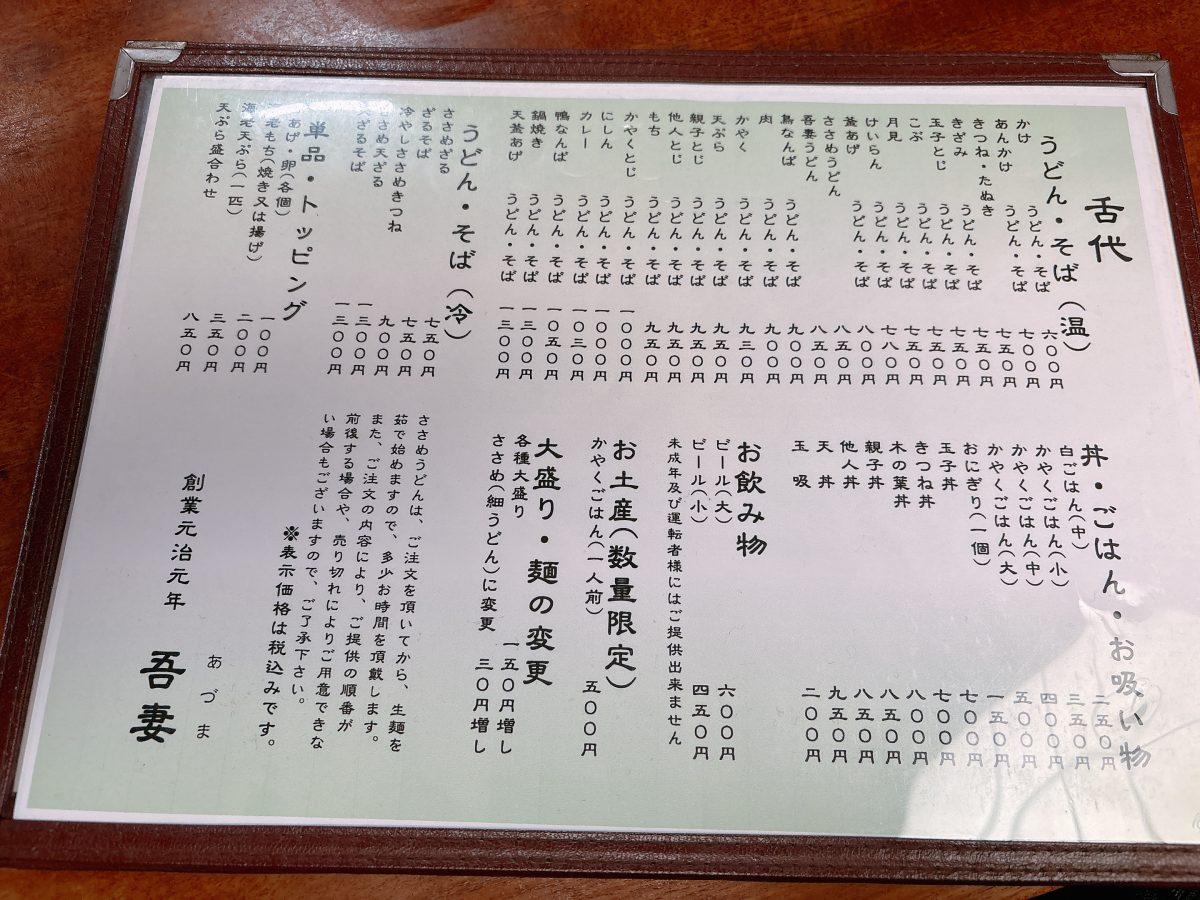 舌代
うどん・そば(温)
かけ うどん・そば 六〇〇円
あんかけ うどん・そば 七〇〇円
きつね・たぬき 七五〇円
きざみ うどん・そば 七五〇円
玉子とじ うどん・そば 七五〇円
こぶ うどん・そば 七五〇円
月見 うどん・そば 七五〇円
けいらん うどん・そば 七八〇円
釜あげ うどん・そば 八〇〇円
ささめうどん 八五〇円
吾妻うどん 八五〇円
鳥なんば うどん・そば 九〇〇円
肉 うどん・そば 九〇〇円
かやく うどん・そば 九三〇円
天ぷら うどん・そば 九五〇円
親子とじ うどん・そば 九五〇円
他人とじ うどん・そば 九五〇円
もち うどん・そば 九五〇円
かやくとじ うどん・そば 一〇〇〇円
にしん うどん・そば 一〇〇〇円
カレー うどん・そば 一〇三〇円
鴨なんば うどん・そば 一〇五〇円
鍋焼き うどん・そば 一三〇〇円
天釜あげ うどん・そば 一三〇〇円
うどん・そば(冷)
ささめざる 七五〇円
ざるそば 七五〇円
冷やしささめきつね 九〇〇円
ささめ天ざる 一三〇〇円
ざるそば 一三〇〇円
単品・トッピング
あげ・卵(各個) 一〇〇円
老もち(焼き又は揚げ) 二〇〇円
海老天ぷら(一匹) 三五〇円
天ぷら盛合わせ 八五〇円
丼・ごはん・お吸い物
白ごはん(中) 二五〇円
かやくごはん(小) 三五〇円
かやくごはん(中) 四〇〇円
かやくごはん(大) 五〇〇円
おにぎり(一個) 一五〇円
玉子丼 七〇〇円
きつね丼 七〇〇円
木の葉丼 八〇〇円
親子丼 八五〇円
他人丼 八五〇円
天丼 九五〇円
玉吸 二〇〇円
お飲み物
ビール(大) 六〇〇円
ビール(小) 四五〇円
未成年及び運転者様にはご提供出来ません
お土産(数量限定)
かやくごはん(一人前) 五〇〇円
大盛り・麺の変更
各種大盛り 一五〇円増し
ささめ(細うどん)に変更 三〇円増し
ささめうどんは、ご注文を頂いてから、生麺を
茹で始めますので、多少お時間を頂戴します。
また、ご注文の内容により、ご提供の順番が
前後する場合や、売り切れによりご用意できな
い場合もございますので、ご了承下さい。
※表示価格は税込みです。
創業元治元年 吾妻
あづま